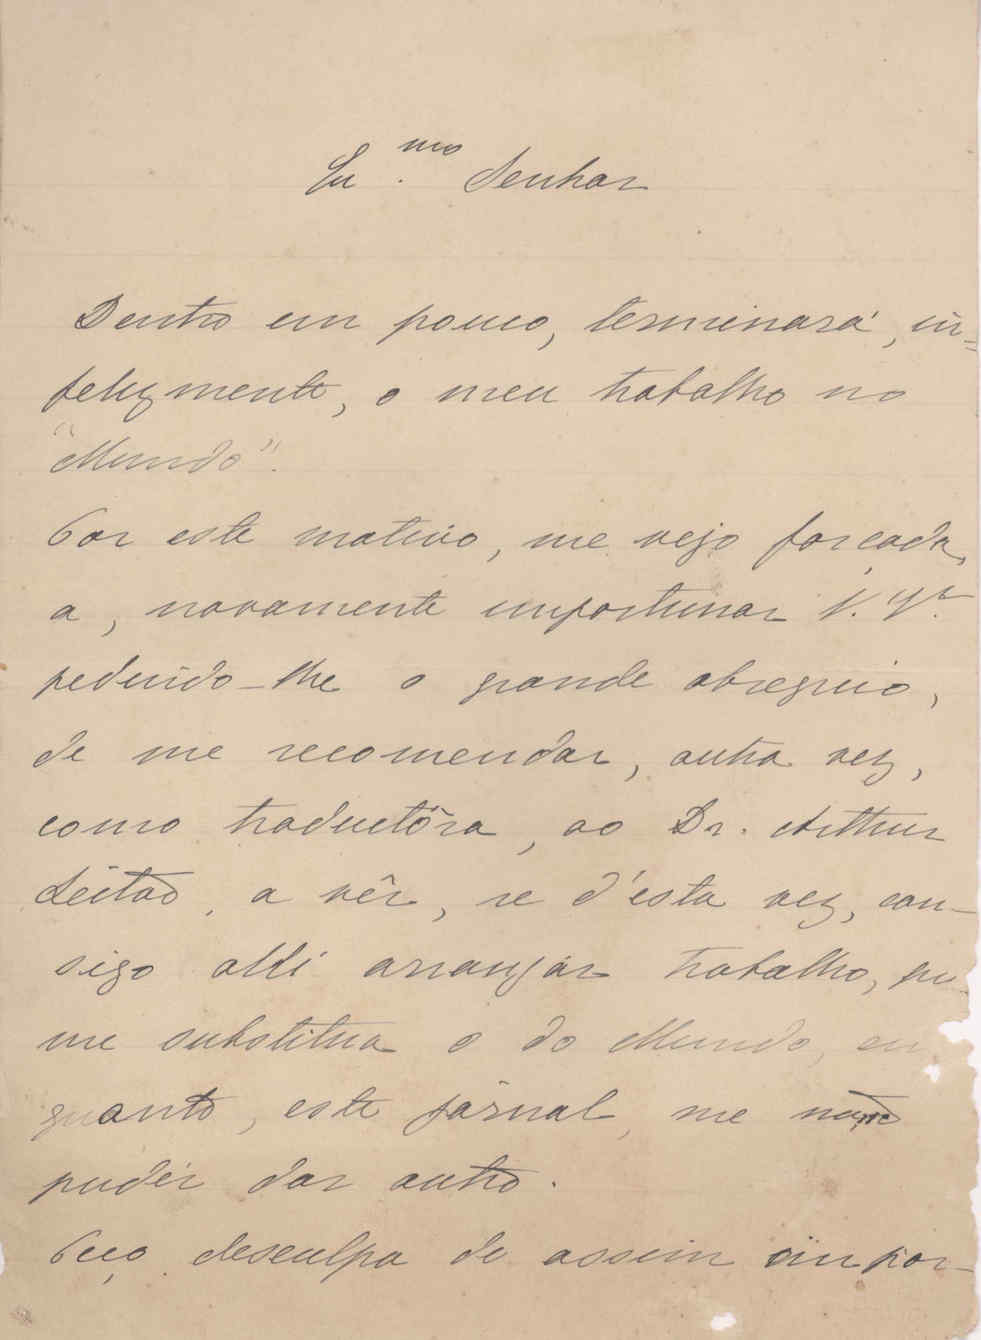 Ex.mo Senhor
Dentro em pouco, terminará, in-
felizmente, o meu trabalho no
"Mundo".
Por este motivo, me vejo forçada,
a, novamente importunar V. Ex.ª
pedindo-lhe o grande obsequio,
de me recomendar, outra vez,
como traductôra, ao Dr. Arthur
Leitão, a vêr, se d'esta vez, con-
sigo alli arranjar trabalho, que
me substitua o do Mundo, en
quanto, este jornal, me não
pudér dar outro.
Peço desculpa de assim impor-